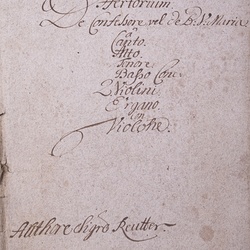 Offertorium
De Confessore vel de B. V. Maria
a
Canto.
Alto.
Tenore
Basso Conc:
2 Violini
Organo.
con
Violone.
Authore Sigre Reutter.